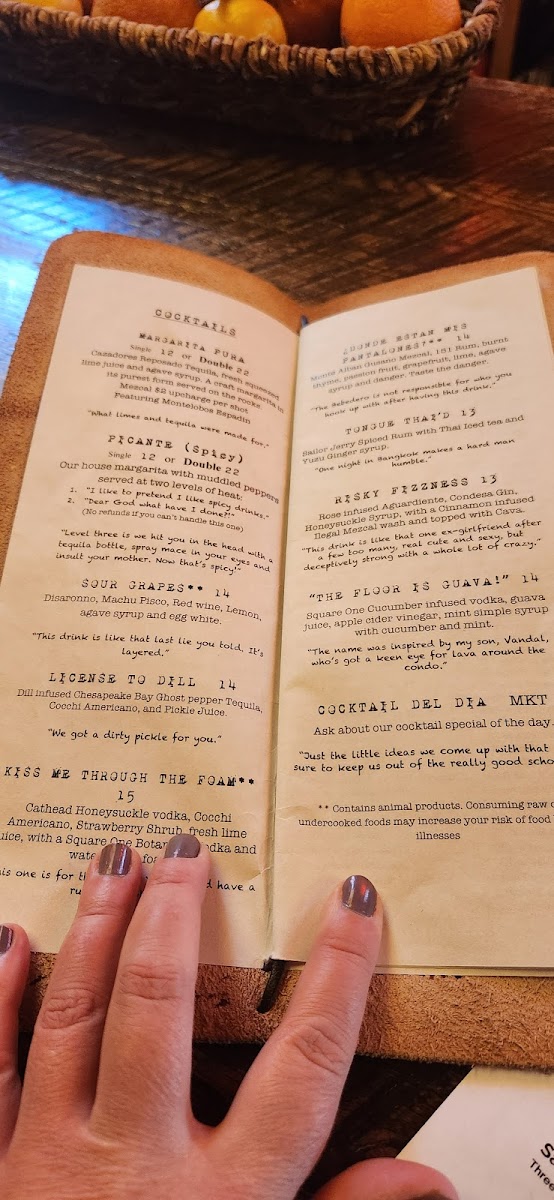 COCKTAILS
MARGARITA PURA
Single 12 or Double 22
Cazadores Reposado Tequila, fresh squeezed
lime juice and agave syrup. A craft margarita in
its purest form served on the rocks.
Mezcal $2 upcharge per shot
Featuring Montelobos Espadin
"What limes and tequila were made for."
PICANTE (Spicy)
Single 12 or Double 22
Our house margarita with muddled peppers
served at two levels of heat:
1. "I like to pretend I like spicy drinks."
2. "Dear God what have I done?!"
(No refunds if you can't handle this one)
"Level three is we hit you in the head with a
tequila bottle, spray mace in your eyes and
insult your mother. Now that's spicy!"
SOUR GRAPES** 14
Disaronno, Machu Pisco, Red wine, Lemon,
agave syrup and egg white.
"This drink is like that last lie you told, It's
layered."
LICENSE TO DILL 14
Dill infused Chesapeake Bay Ghost pepper Tequila,
Cocchi Americano, and Pickle Juice.
"We got a dirty pickle for you."
KISS ME THROUGH THE FOAM**
15
Cathead Honeysuckle vodka, Cocchi
Americano, Strawberry Shrub, fresh lime
juice, with a Square One vodka and
is one is for have a
¿DONDE ESTAN MIS
PANTALONES?** 14
Monte Alban Gusano Mezcal, 151 Rum, burnt
thyme, passion fruit, grapefruit, lime, agave
syrup and danger. Taste the danger.
"The Bebedero is not responsible for who you
hook up with after having this drink."
TONGUE THAI'D 13
Sailor Jerry Spiced Rum with Thai Iced tea and
Yuzu Ginger syrup.
"One night in Bangkok makes a hard man
humble."
RISKY FIZZNESS 13
Rose infused Aguardiente, Condesa Gin,
Honeysuckle Syrup, with a Cinnamon infused
Ilegal Mezcal wash and topped with Cava.
"This drink is like that one ex-girlfriend after
a few too many, real cute and sexy, but
deceptively strong with a whole lot of crazy."
"THE FLOOR IS GUAVA!" 14
Square One Cucumber infused vodka, guava
juice, apple cider vinegar, mint simple syrup
with cucumber and mint.
"The name was inspired by my son, Vandal,
who's got a keen eye for lava around the
condo."
COCKTAIL DEL DIA MKT
Ask about our cocktail special of the day.
"Just the little ideas we come up with that
sure to keep us out of the really good scho
** Contains animal products. Consuming raw o
undercooked foods may increase your risk of food
illnesses
Three